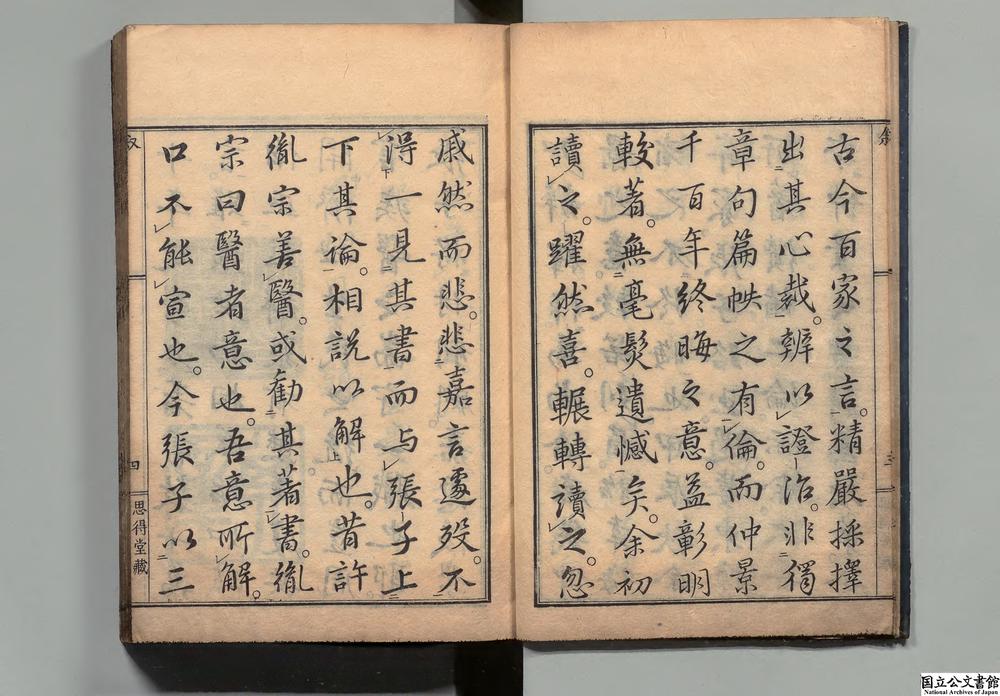 古今百家之言。精嚴採擇
出其心裁。辨以證治。非獨
章句篇帙之有倫。而仲景
千百年終晦之意。益彰明
較著。無毫髮遺憾矣。余初
讀之。躍然喜。輾轉讀之。忽
戚然而悲。悲嘉言遽歿。不
得一見其書而与張子上
下其論。相説以解也。昔許
胤宗善醫。或勸其著書。胤
宗曰醫者意也。吾意所解。
口不能宣也。今張子以三
叙
三
叙
四
思得堂藏
国立公文書館
National Archives of Japan